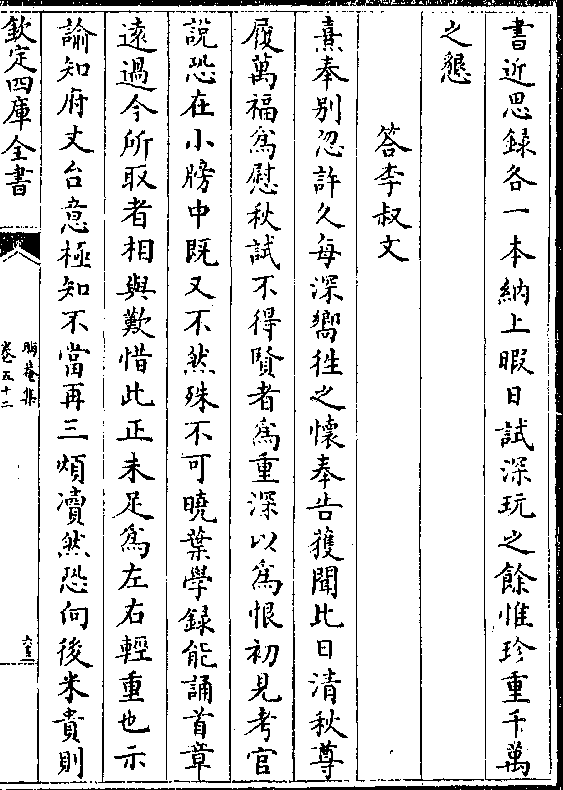 書近思録各一本納上暇日試深玩之餘惟珍重千萬
之懇
答李叔文
熹奉別忽許久每深嚮徃之懷奉告獲聞比日清秋尊
履萬福為慰秋試不得賢者為重深以為恨初見考官
說恐在小牓中既又不然殊不可曉葉學録能誦首章
逺過今所取者相與歎惜此正未足為左右輕重也示
論知府丈台意極知不當再三煩凟然恐向後米貴則
欽定四庫全書
晦菴集
卷五十二
六十三